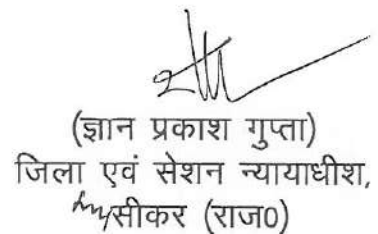 (ज्ञान प्रकाश गुप्ता)
जिला एवं सेशन न्यायाधीश,
सीकर (राज0)